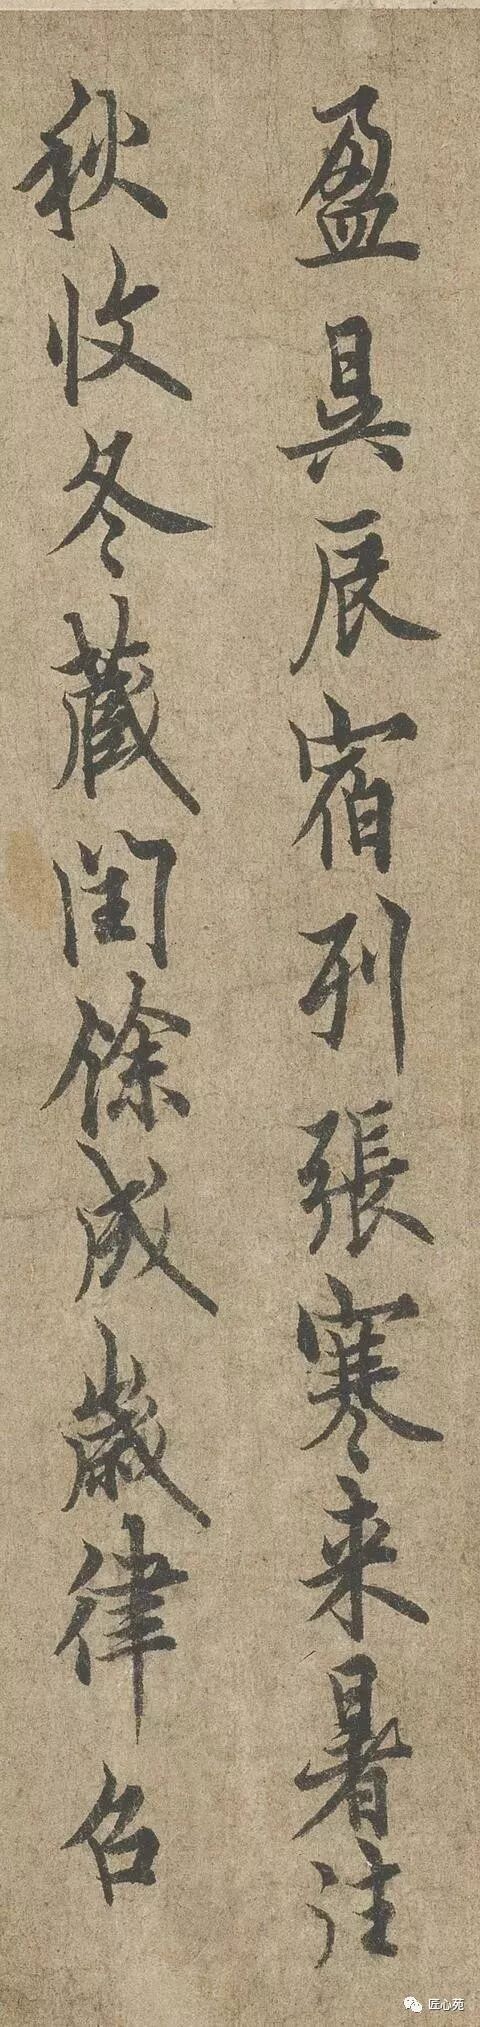 盈昃辰宿列張寒来暑往
秋收冬藏閏餘成歲律召
匠心苑